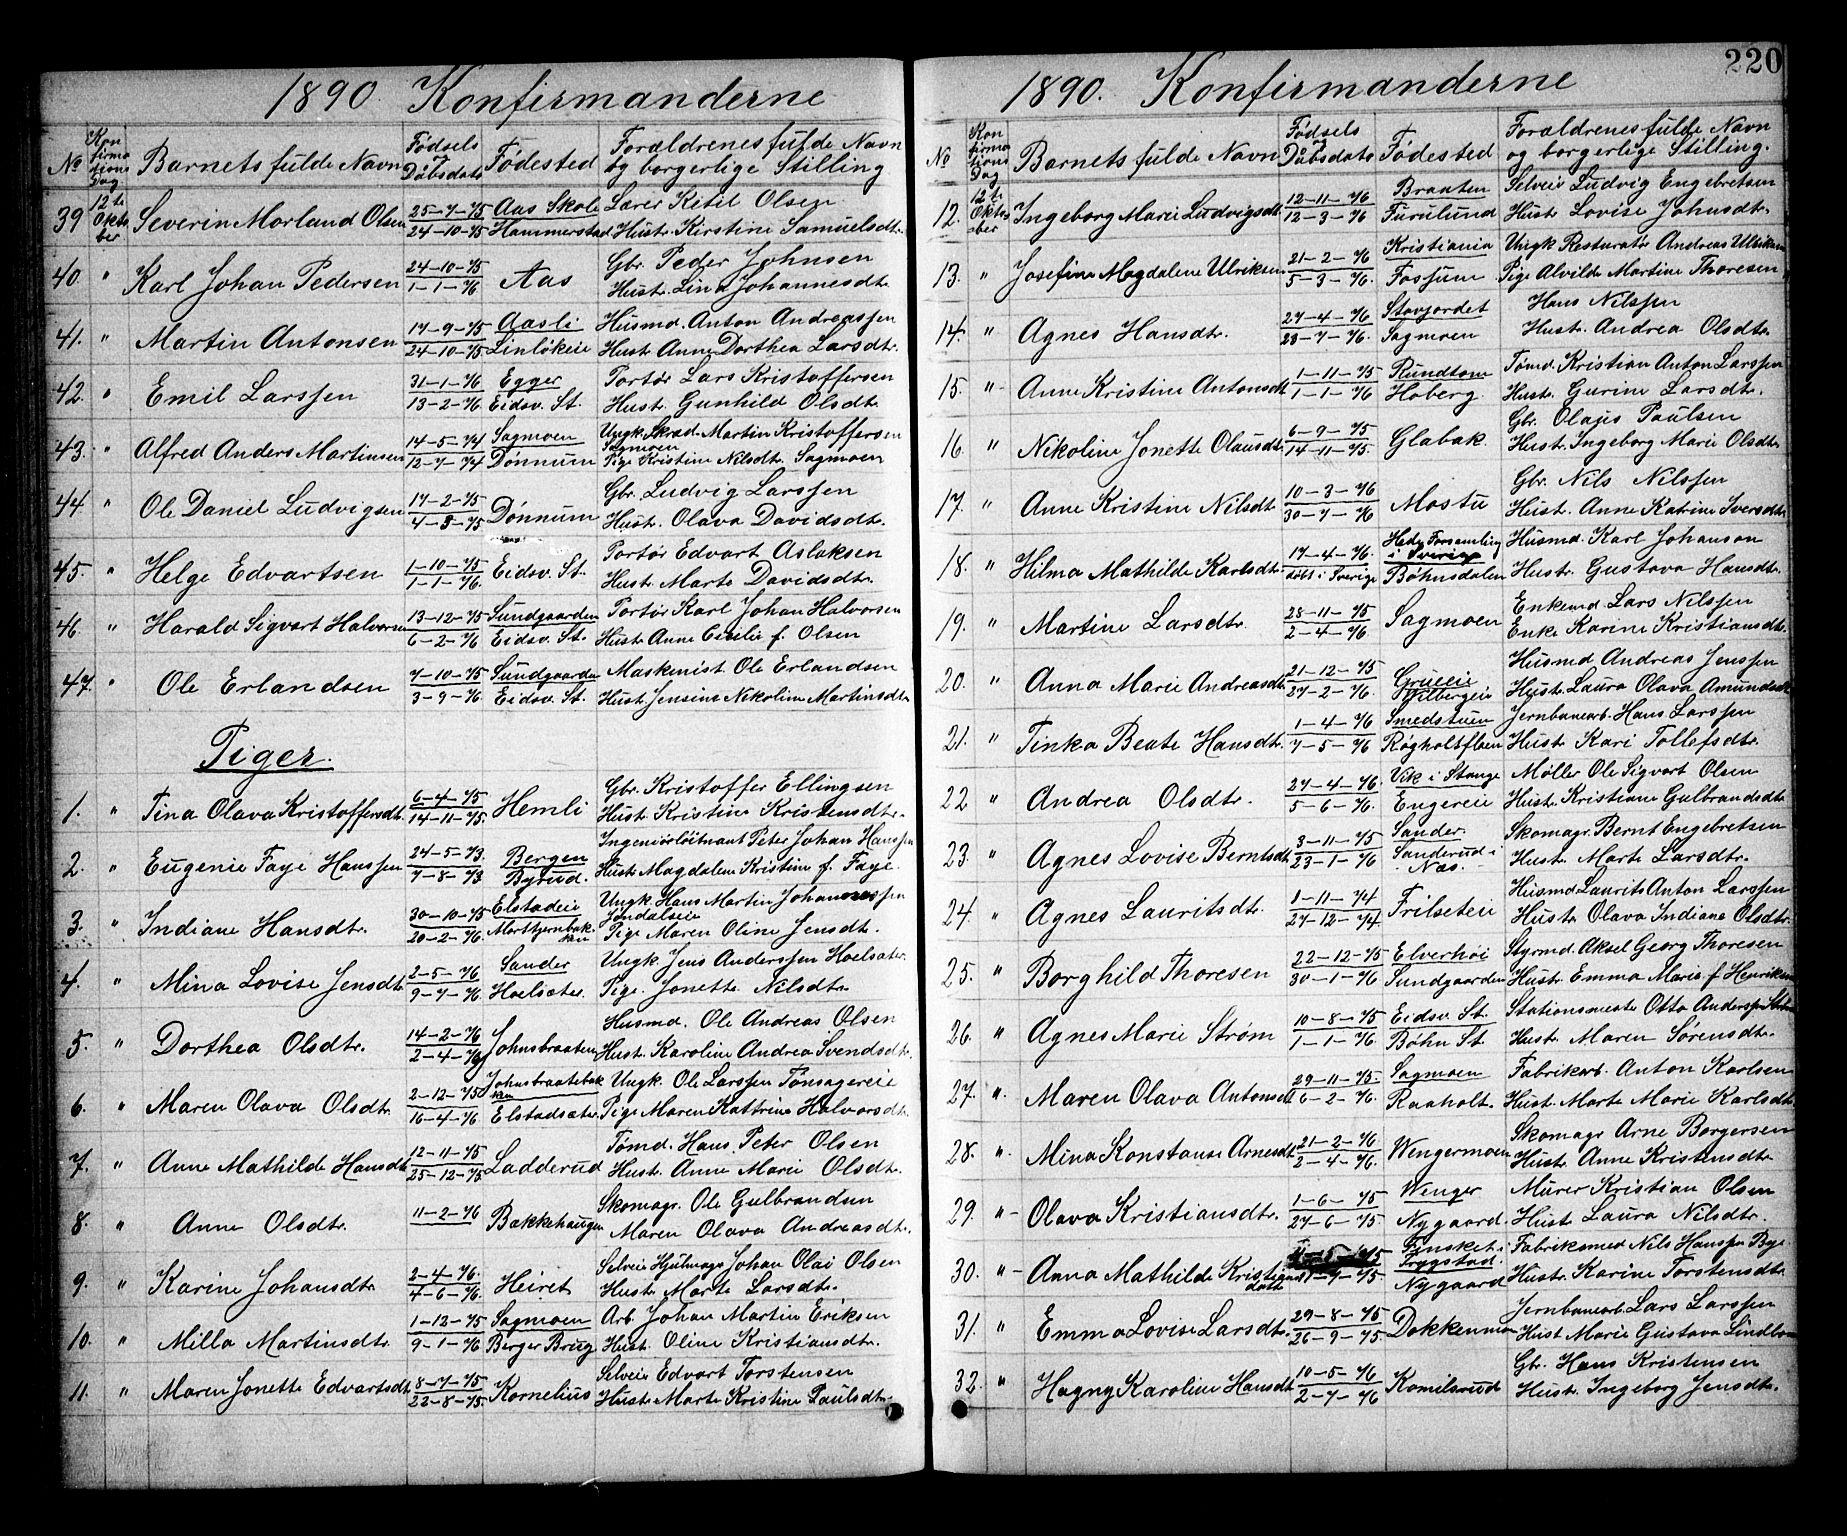 1890 Konfirmanderne
No Konfirmations Dag Barnets fulde Navn Fødsels og Dåbsdato Fødested Forældrenes fulde Navn og borgerlige Stilling
39 12te Oktober Severin Morland Olsen 25-7-75 24-10-75 Aas Skole Hammerstad Lærer Ketil Olsen Hustr. Kirstine Samuelsdtr.
40. " Karl Johan Pedersen 24-10-75 1-1-76 Aas Gbr. Peder Johnsen Hustr. Lina Johannesdtr.
41. " Martin Antonsen 17-9-75 24-10-75 Aasli Linløkeie Husmd. Anton Andreassen Hustr. Anne Dorthea Larsdtr.
42. " Emil Larssen 31-1-76 13-2-76 Egger Eidsv. St. Portør Lars Kristoffersen Hustr. Gunhild Olsdtr.
43. " Alfred Anders Martinsen 14-5-74 12-7-74 Sagmoen Dønnum Ungk. Skræd. Martin Kristoffersen Sagmoen Pige Kristine Nilsdtr. Sagmoen
44. " Ole Daniel Ludvigsen 17-2-75 4-3-75 Dønnum Gbr. Ludvig Larssen Hustr. Olava Davidsdtr.
45. " Helge Edvartsen 1-10-75 1-1-76 Eidsv. St. Portør Edvart Aslaksen Hustr. Marte Davidsdtr.
46. " Harald Sigvart Halvorsen 13-12-75 6-2-76 Sundgaarden Eidsv. St. Portør Karl Johan Halvorsen Hustr. Anne Cecilie f. Olsen
47. " Ole Erlandsen 7-10-75 3-9-76 Sundgaarden Eidsv. St. Maskenist Ole Erlandsen Hustr. Jensine Nikoline Martinsdtr.
Piger.
1. " Tina Olava Kristoffersdtr. 6-4-75 14-11-75 Hemli Gbr. Kristoffer Ellingsen Hustr. Kristine Kristensdtr.
2. " Eugenie Faye Hanssen 24-5-73. 7-8-73 Bergen Byrud. Ingeniørløitnant Peter Johan Hanssen Hustr. Magdalene Kristine f. Faye.
3. " Indiane Hansdtr. 30-10-75 20-2-76. Elstadeie Ungk. Hans Martin Johannessen Pige Maren Oline Jensdtr.
4. " Mina Lovise Jensdtr. 2-5-76 9-7-76 Sander Hoelsæter. Ungk. Jens Anderssen Hoelsæter. Pige Jonette Nilsdtr.
5. " Dorthea Olsdtr. 14-2-76 2-4-76 Johnsbraaten Husmd. Ole Andreas Olsen Hustr. Karoline Andrea Svendsdtr.
6. " Maren Olava Olsdtr. 2-12-75 16-4-76 Johnsbraatebakken Elstadsæter. Ungk. Ole Larssen Tønsagereie Pige Maren Kattrine Halvorsdtr.
7. " Anne Mathilde Hansdtr. 12-11-75 25-12-75 Ladderud Tømd. Hans Peter Olsen Hustr. Anne Marie Olsdtr.
8. " Anne Olsdtr. 11-2-76 Bakkehaugen Skomagr. Ole Gulbrandsen Maren Olava Andreasdtr.
9. " Karine Johansdtr. 2-4-76. 4-6-76. Heiret Selveier Hjulmagr. Johan Olai Olsen Hustr. Marte Larsdtr.
10. " Milla Martinsdtr. 1-12-75 9-1-76 Sagmoen Berger Brug Arb. Johan Martin Eriksen Hustr. Oline Kristiansdtr.
11. " Maren Jonette Edvartsdtr. 8-7-75 22-8-75 Kornelius Selveier Edvart Torstensen Hustr. Marte Kristine Paulsdtr.
220
1890. Konfirmanderne
No Konfirmations Dag Barnets fulde Navn Fødsels og Dåbsdato Fødested Forældrenes fulde Navn og borgerlige Stilling.
12. 12te Oktober Ingeborg Marie Ludvigsdtr. 12-11-76 12-3-76 Braaten Furulund Selveier Ludvig Engebretsen Hustr. Lovise Johnsdtr.
13. " Josefine Magdalene Ulriksen 21-2-76 5-3-76. Kristiania Fossum Ungk Resturatør Andreas Ulriksen Pige Alvilde Martine Thoresen
14. " Agnes Hansdtr. 27-4-76 28-7-76. Stovjordet Sagmoen Hans Nilssen Hustr. Andrea Olsdtr.
15. " Anne Kristine Antonsdtr. 1-11-75 1-1-76 Rundtom Hoberg. Tømd. Kristian Anton Larssen Hustr. Gurine Larsdtr.
16. " Nikoline Jonette Olausdtr. 6-9-75 14-11-75. Glabak. Gbr. Olajus Paulsen Hustr. Ingeborg Marie Olsdtr.
17. " Anne Kristine Nilsdtr. 10-3-76 30-7-76 Mostu Gbr. Nils Nilssen Hustr. Anne Katrine Iversdtr.
18. " Hilma Mathilde Karlsdtr. 17-4-76. døbt i Sverige Forsamling i Sverige Bøhnsdalen Husmd. Karl Johanson Hustr. Gustava Hansdtr.
19. " Martine Larsdtr. 28-11-75 2-4-76. Sagmoen Enkemd. Lars Nilssen Enke Karine Kristiansdtr.
20. " Anna Marie Andreasdtr. 21-12-75 27-2-76. Grueeie Husmd. Andreas Jenssen Hustr. Laura Olava Amundsdtr.
21. " Tinka Beate Hansdtr. 1-4-76 7-5-76 Smedstuen Røgholtfloen Jernbanearb. Hans Larssen Hustr. Kari Tollefsdtr.
22 " Andrea Olsdtr. 27-4-76. 5-6-76. Vik i Stange Engereie Møller Ole Sigvart Olsen Hustr. Kristiane Gulbrandsdtr.
23. " Agnes Lovise Berntsdtr. 3-11-75 23-1-76 Sander. Sanderud i Næs. Skomagr. Bernt Engebretsen Hustr. Marte Larsdtr.
24. " Agnes Lauritsdtr. 1-11-74 27-12-74 Frilseteie Husmd. Laurits Anton Larssen Hustr. Olava Indiane Olsdtr.
25. " Borghild Thoresen 22-12-75 30-1-76 Elverhøi Sundgaarden Styrmd. Aksel Georg Thoresen Hustr. Emma Marie f. Henriksen
26. " Agnes Marie Strøm 10-8-75 1-1-76 Eidsv. St. Bøhn St. Stationsmester Otto Anderssen Strøm Hustr. Maren Sørensdtr.
27. " Maren Olava Antonsdtr. 29-11-75. 6-2-76. Sagmoen Raaholt. Fabrikarb. Anton Karlsen Hustr. Marte Marie Karlsdtr.
28. " Mina Konstanse Arnesdtr. 21-2-76 2-4-76. Wengermoen Skomagr. Arne Borgersen Hustr. Anne Kristensdtr.
29. " Olava Kristiansdtr. 1-6-75 27-6-75. Wenger Nygaard. Murer Kristian Olsen Hustr. Laura Nilsdtr.
30. " Anna Mathilde Kristiansdatr. Trygstad. Nygaard Fabriksmed Nils Hanssen Bye Hustr. Karine Torstensdtr.
31. " Emma Lovise Larsdtr. 29-8-75 26-9-75 Dokkenmoen Jernbanearb. Lars Larssen Hustr. Marie Gustava Lindbom
32. " Hagny Karoline Hansdtr. 10-5-76 2-7-76 Komilsrud Gbr. Hans Kristensen Hustr. Ingeborg Jensdtr.